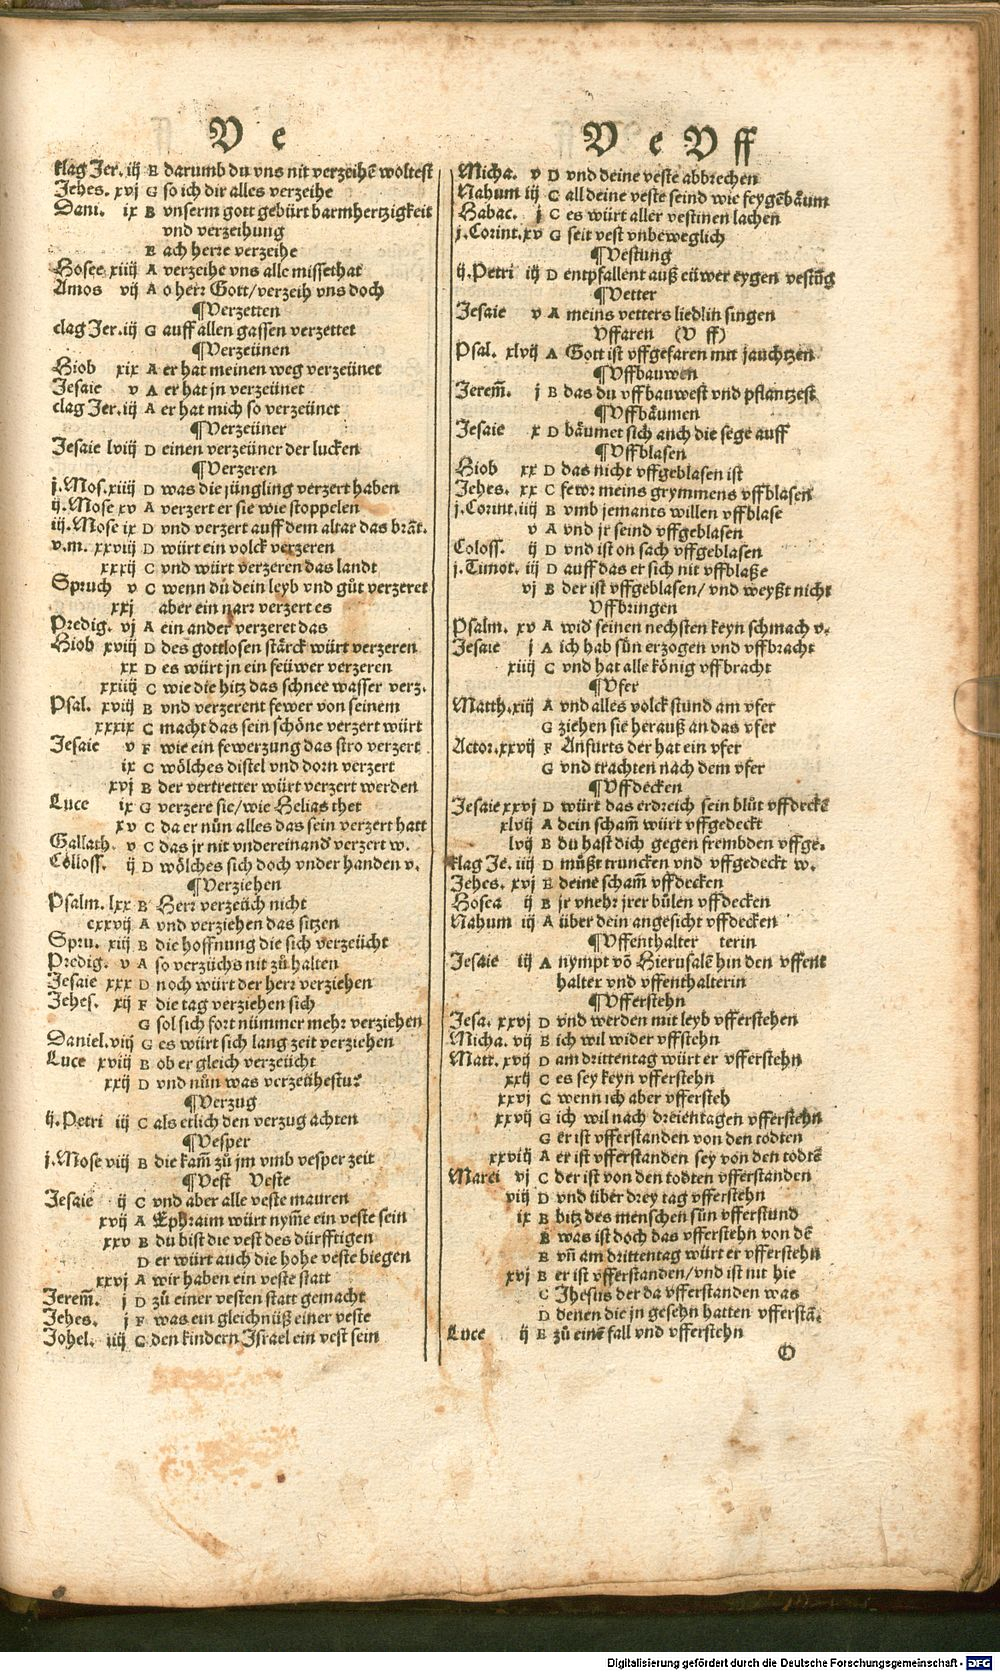 V e
klag Jer. iij E darumb du vns nit verzeihẽ woltest
Jehes. xvj G so ich dir alles verzeihe
Dani. ix B vnserm gott gebürt barmhertzigkeit
vnd verzeihung
E ach herre verzeihe
Hosee xiiij A verzeihe vns alle missethat
Amos vij A o herr Gott/ verzeih vns doch
¶Verzetten
clag Jer. iij G auff allen gassen verzettet
¶Verzeünen
Hiob xix A er hat meinen weg verzeünet
Jesaie v A er hat jn verzeünet
clag Jer. iij A er hat mich so verzeünet
¶Verzeüner
Jesaie lviij D einen verzeüner der lucken
¶Verzeren
j. Mos. xiiij D was die jüngling verzert haben
ij. Mose xv A verzert er sie wie stoppelen
iij. Mose ix D vnd verzert auff dem altar das brãt.
v. m. xxviij D würt ein volck verzeren
xxxij C vnd würt verzeren das landt
Spruch v C wenn dů dein leyb vnd gůt verzeret
xxj aber ein narr verzert es
Predig. vj A ein ander verzeret das
Hiob xviij D des gottlosen stärck würt verzeren
xx D es würt jn ein feüwer verzeren
xxiiij C wie die hitz das schnee wasser verz.
Psal. xviij B vnd verzerent fewer von seinem
xxxix C macht das sein schöne verzert würt
Jesaie v F wie ein fewerzung das stro verzert
ix C wölches distel vnd dorn verzert
xvj B der vertretter würt verzert werden
Luce ix G verzere sie/ wie Helias thet
xv C da er nůn alles das sein verzert hatt
Gallath. v C das jr nit vndereinand verzert w.
Colloss. ij D wölches sich doch vnder handen v.
¶Verziehen
Psalm. lxx B Herr verzeüch nicht
cxxvij A vnd verziehen das sitzen
Spru. xiij B die hoffnung die sich verzeücht
Predig. v A so verzüchs nit zů halten
Jesaie xxx D noch würt der herr verziehen
Jehes. xij F die tag verziehen sich
G sol sich fort nümmer mehr verziehen
Daniel. viij G es würt sich lang zeit verziehen
Luce xviij B ob er gleich verzeücht
xxij D vnd nůn was verzeühestu?
¶Verzug
ij. Petri iij C als etlich den verzug achten
¶Vesper
j. Mose viij B die kam̃ zů jm vmb vesper zeit
¶Vest Veste
Jesaie ij C vnd aber alle veste mauren
xvij A Ephraim würt nym̃e ein veste sein
xxv B du bist die vest des dürfftigen
D er würt auch die hohe veste biegen
xxvj A wir haben ein veste statt
Jerem̃. j D zů einer vesten statt gemacht
Jehes. j F was ein gleichnüß einer veste
Johel. iiij C den kindern Israel ein vest sein
V e V ff
Micha. v D vnd deine veste abbrechen
Nahum iij C all deine veste seind wie feygẽbäum
Habac. j C es würt aller vestinen lachen
j. Corint. xv G seit vest vnbeweglich
¶Vestung
ij. Petri iij D entpfallent auß eüwer eygen vestũg
¶Vetter
Jesaie v A meins vetters liedlin singen
Vffaren (V ff)
Psal. xlvij A Gott ist vffgefaren mit jauchtzen
¶Vffbauwen
Jerem̃. j B das du vffbauwest vnd pflantzest
¶Vffbäumen
Jesaie x D bäumet sich auch die sege auff
¶Vffblasen
Hiob xx D das nicht vffgeblasen ist
Jehes. xx C fewr meins grymmens vffblasen
j. Corint. iiij B vmb jemants willen vffblase
v A vnd jr seind vffgeblasen
Coloss. ij D vnd ist on sach vffgeblasen
j. Timot. iij D auff das er sich nit vffblaße
vj B der ist vffgeblasen/ vnd weyßt nicht
Vffbringen
Psalm. xv A wid̕ seinen nechsten keyn schmach v.
Jesaie j A ich hab sün erzogen vnd vffbracht
xiiij C vnd hat alle könig vffbracht
¶Vfer
Matth. xiij A vnd alles volck stund am vfer
G ziehen sie herauß an das vfer
Actor. xxvij F Anfurts der hat ein vfer
G vnd trachten nach dem vfer
¶Vffdecken
Jesaie xxvj D würt das erdreich sein blůt vffdeckẽ
xlvij A dein scham̃ würt vffgedeckt
lvij B du hast dich gegen frembden vffge.
klag Je. iiij D můßt truncken vnd vffgedeckt w.
Jehes. xvj E deine scham̃ vffdecken
Hosea ij B jr vnehr jrer bülen vffdecken
Nahum iij A über dein angesicht vffdecken
¶Vffenthalter terin
Jesaie iij A nympt võ Hierusalẽ hin den vffent
halter vnd vffenthalterin
¶Vfferstehn
Jesa. xxvj D vnd werden mit leyb vfferstehen
Micha. vij B ich wil wider vffstehn
Matt. xvij D am drittentag würt er vfferstehn
xxij C es sey keyn vfferstehn
xxvj C wenn ich aber vffersteh
xxvij G ich wil nach dreientagen vfferstehn
G er ist vfferstanden von den todten
xxviij A er ist vfferstanden sey von den todtẽ
Marci vj C der ist von den todten vfferstanden
viij D vnd über drey tag vfferstehn
ix B bitz des menschen sün vfferstund
B was ist doch das vfferstehn von dẽ
E vñ am drittentag würt er vfferstehn
xvj B er ist vfferstanden/ vnd ist nit hie
C Jhesus der da vfferstanden was
D denen die jn gesehn hatten vfferstã.
Luce ij E zů einẽ fall vnd vfferstehn
O
Digitalisierung gefördert durch die Deutsche Forschungsgemeinschaft - DFG